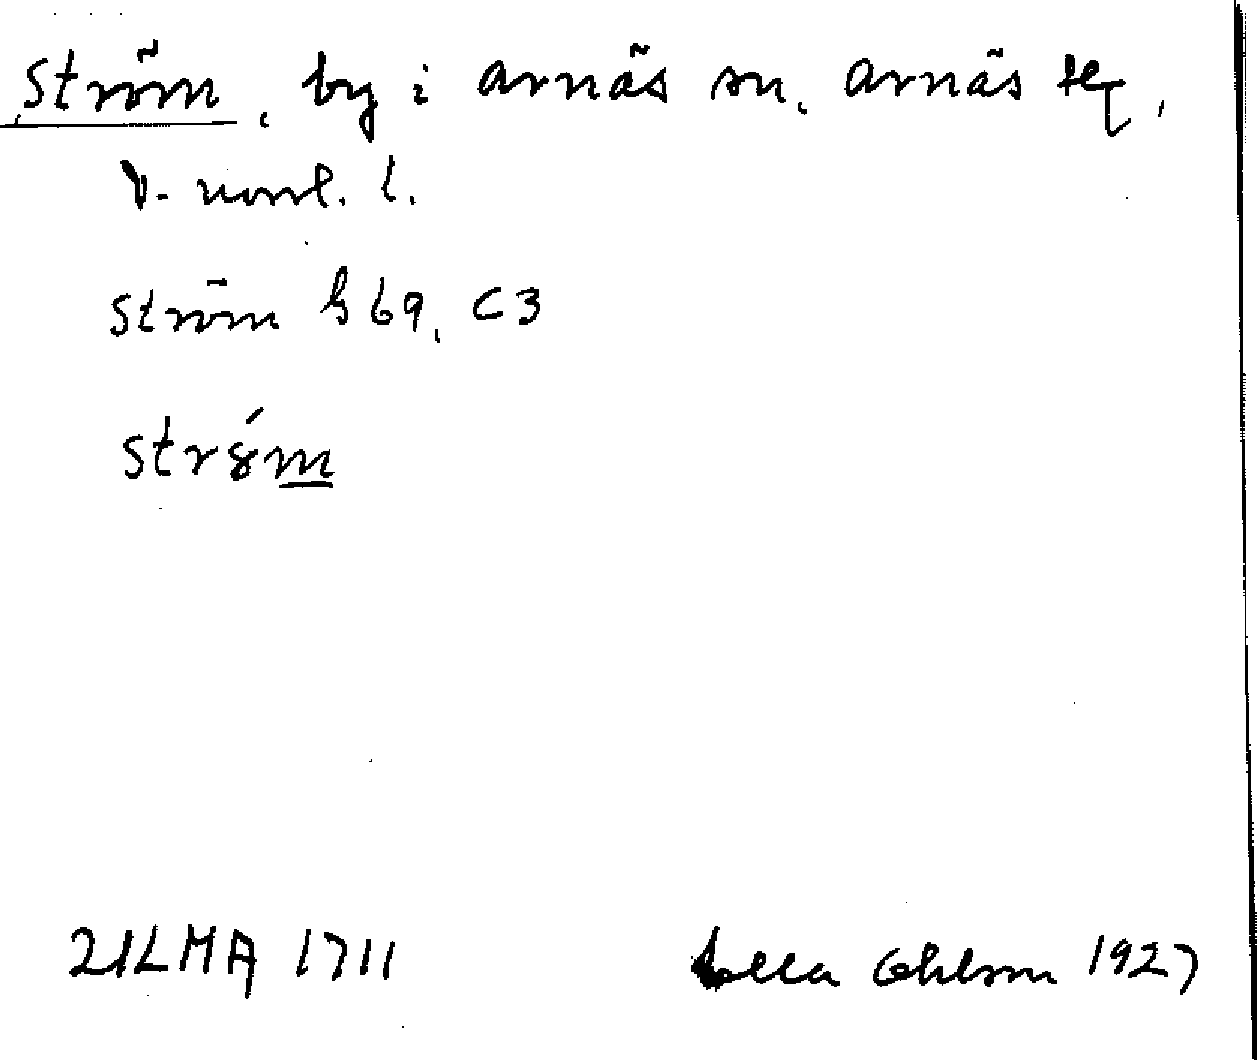 Ström, by i Arnäs sn, Arnäs tg,
V. norrl. l.
Ström G 69, C3
strǿm
2ILMA 1711
Ella Ohlson 1927